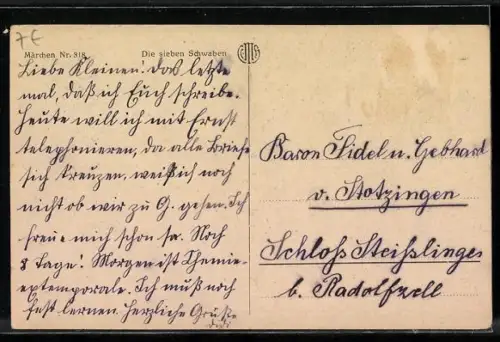 7€
Märchen Nr. 318 Die sieben Schwaben
Liebe Kleinen! Das letzte
mal, daß ich Euch schreibe.
Heute will ich mit Ernst
telephonieren, da alle Briefe
sich kreuzen, weiß ich noch
nicht ob wir zu G. gehen. Ich
freue mich schon sa. Noch
8 Tage! Morgen ist Chemie-
extemporale. Ich muß noch
fest lernen. Herzliche Grüße
Baron Fidel u. Gebhard
v. Stotzingen
Schloß Steißlingen
b. Radolfzell